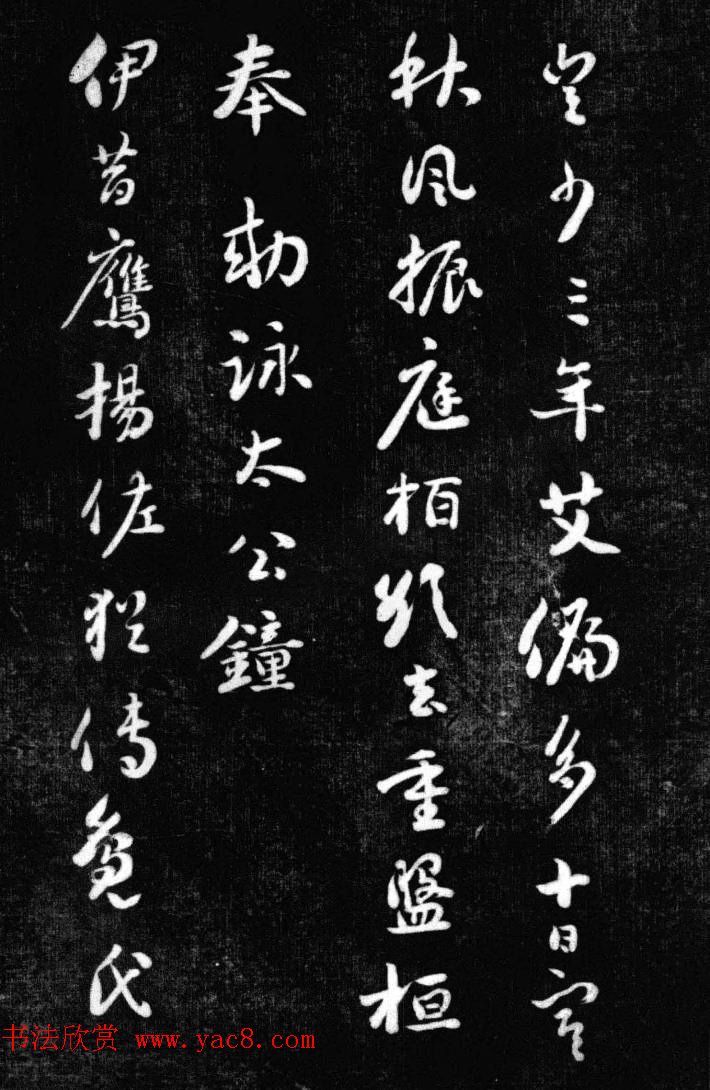 豈少三年艾偏多十日寒
秋風振庭柏欲去重盤桓
奉勅詠太公鐘
伊昔鷹揚佐猶傳鳧氏
书法欣赏 www.yac8.com